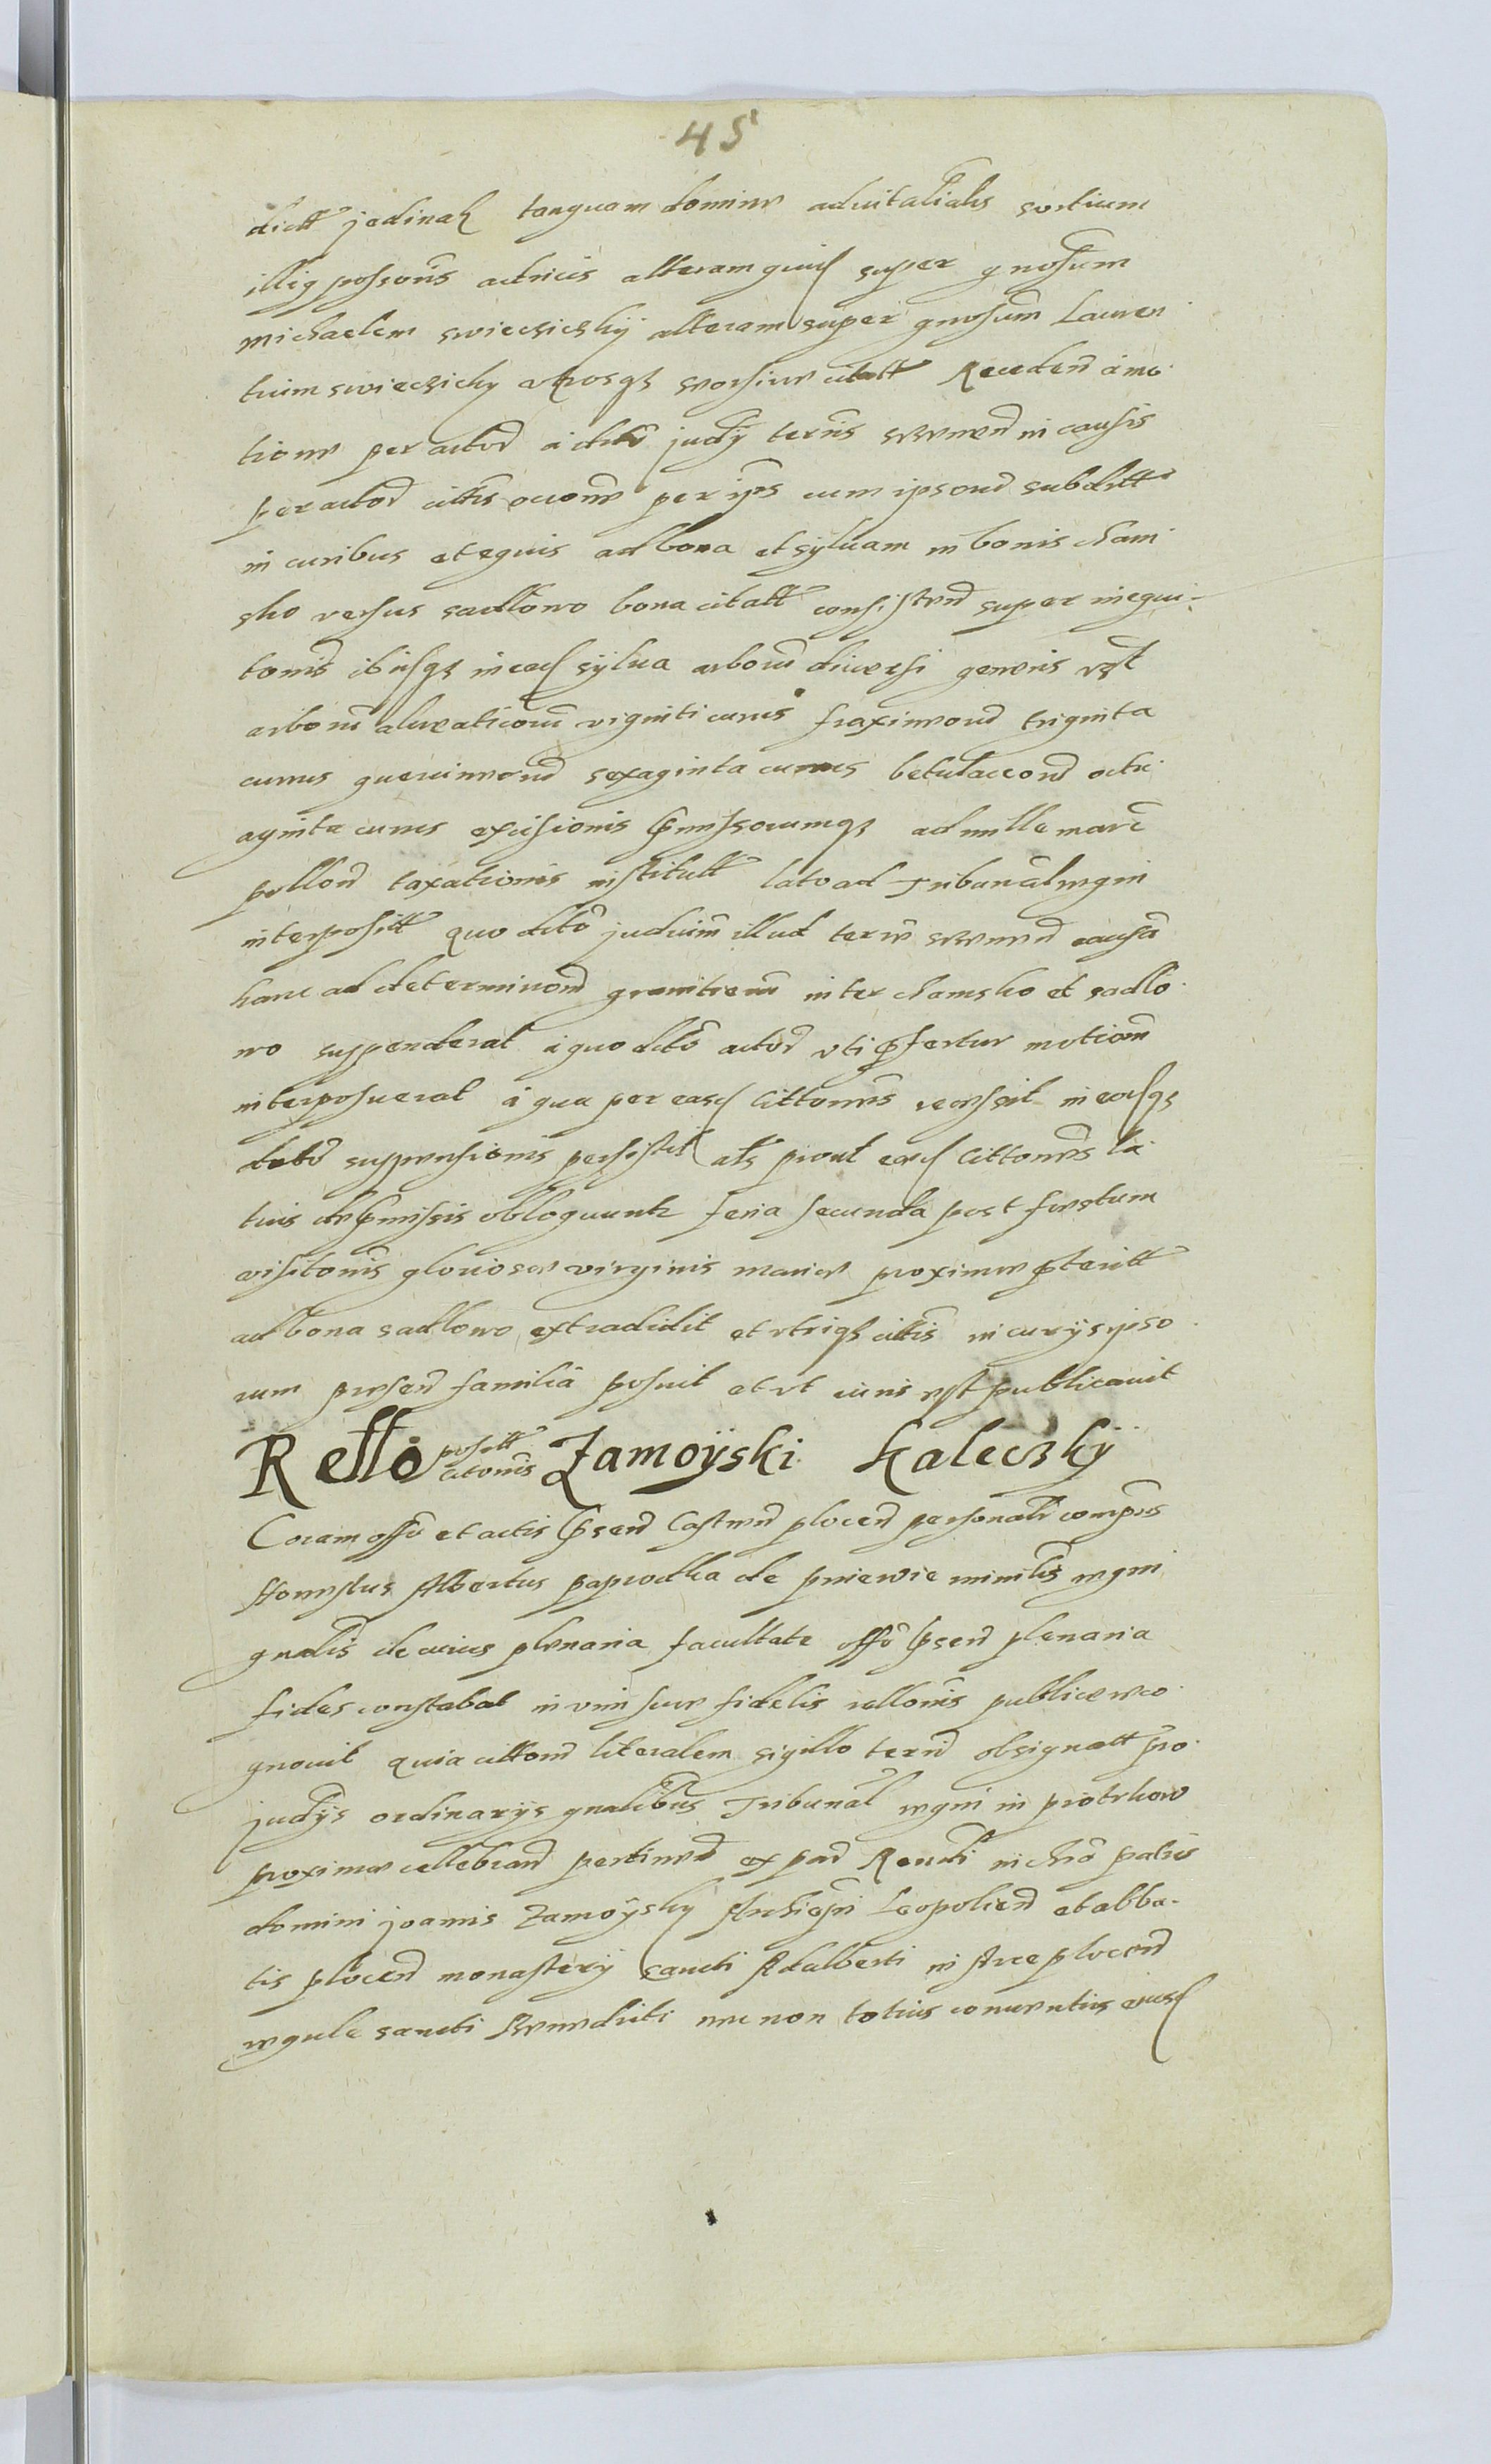 45
dictt jedinak tanquam dominus aduitalialis sortium
illiq possoris actricis alteram quid super gnosum
michaelem swiecsiczky alteram super gnosum Lauren
tium swiecsicky vtrosqz seorsiue citatt Receden a mo
tione per actor a dicto judÿ terris serenen in causis
per actor citts ocione per ipos cum ipsoru subditt
in curribus et equis ad bona et syluam in bonis cham
sko versus sadlowo bona citatt consisten super inequi
tonis ibiqz in ead sÿlua arboru diuersi generis vst
arboru alueaticoru viginti currus fraxineoru triginta
currus quercineoru sexaginta currus betulaceoru octu
aginta currus excisionis pmissorumqz ad mille marc
pollon taxationis institutt lato ad Tribunal regni
interpositt quo dicto judicium illud terre serenen causam
hanc ad determinaom granitierum inter chamsko et sadlo
wo suspenderat a quo dicto actor vti pfertur motionem
interposuerat a qua per easd Cittones recessit in eadqz
debo suspensionis persistit als prout eaed Cittones la
tius de pmissis obloquuntur feria secunda post festum
visitonis gloriosae virginis mariae proxime pteritt
ad bona sadlowo extradidit et vtriqz cittis in curijs ipso
rum presen familia posuit et vt iuris est publicauit
Rello positt citonis Zamoÿski Kaleczkÿ
Coram offo et actis psen Castren plocen personalr compns
Honestus Albertus paprodka de pniewie ministlis regni
gnalis de cuius plenaria facultate offo psen plenaria
fides constabat in vim suae fidelis rellonis publice reco
gnouit quia cittom literalem sigillo terri obsignatt pro
judijs ordinarijs gnalibus Tribunal regni in piotrkow
proxime cellebran pertinen ex par Rendi in chro patris
domini joannis Zamoÿsky Archiepi Leopolien et abba
tis plocen monasterij sancti Adalberti in Arce plocen
regule sancti Benedicti nec non totius conuentus eiusd